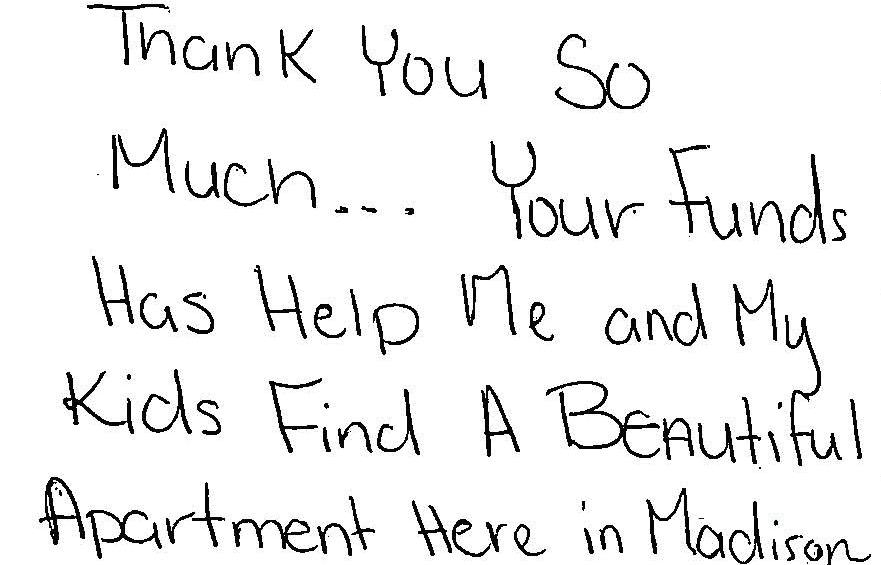 Thank You So
Much... Your Funds
Has Help Me and My
Kids Find A BEAutiful
Apartment Here in Madison